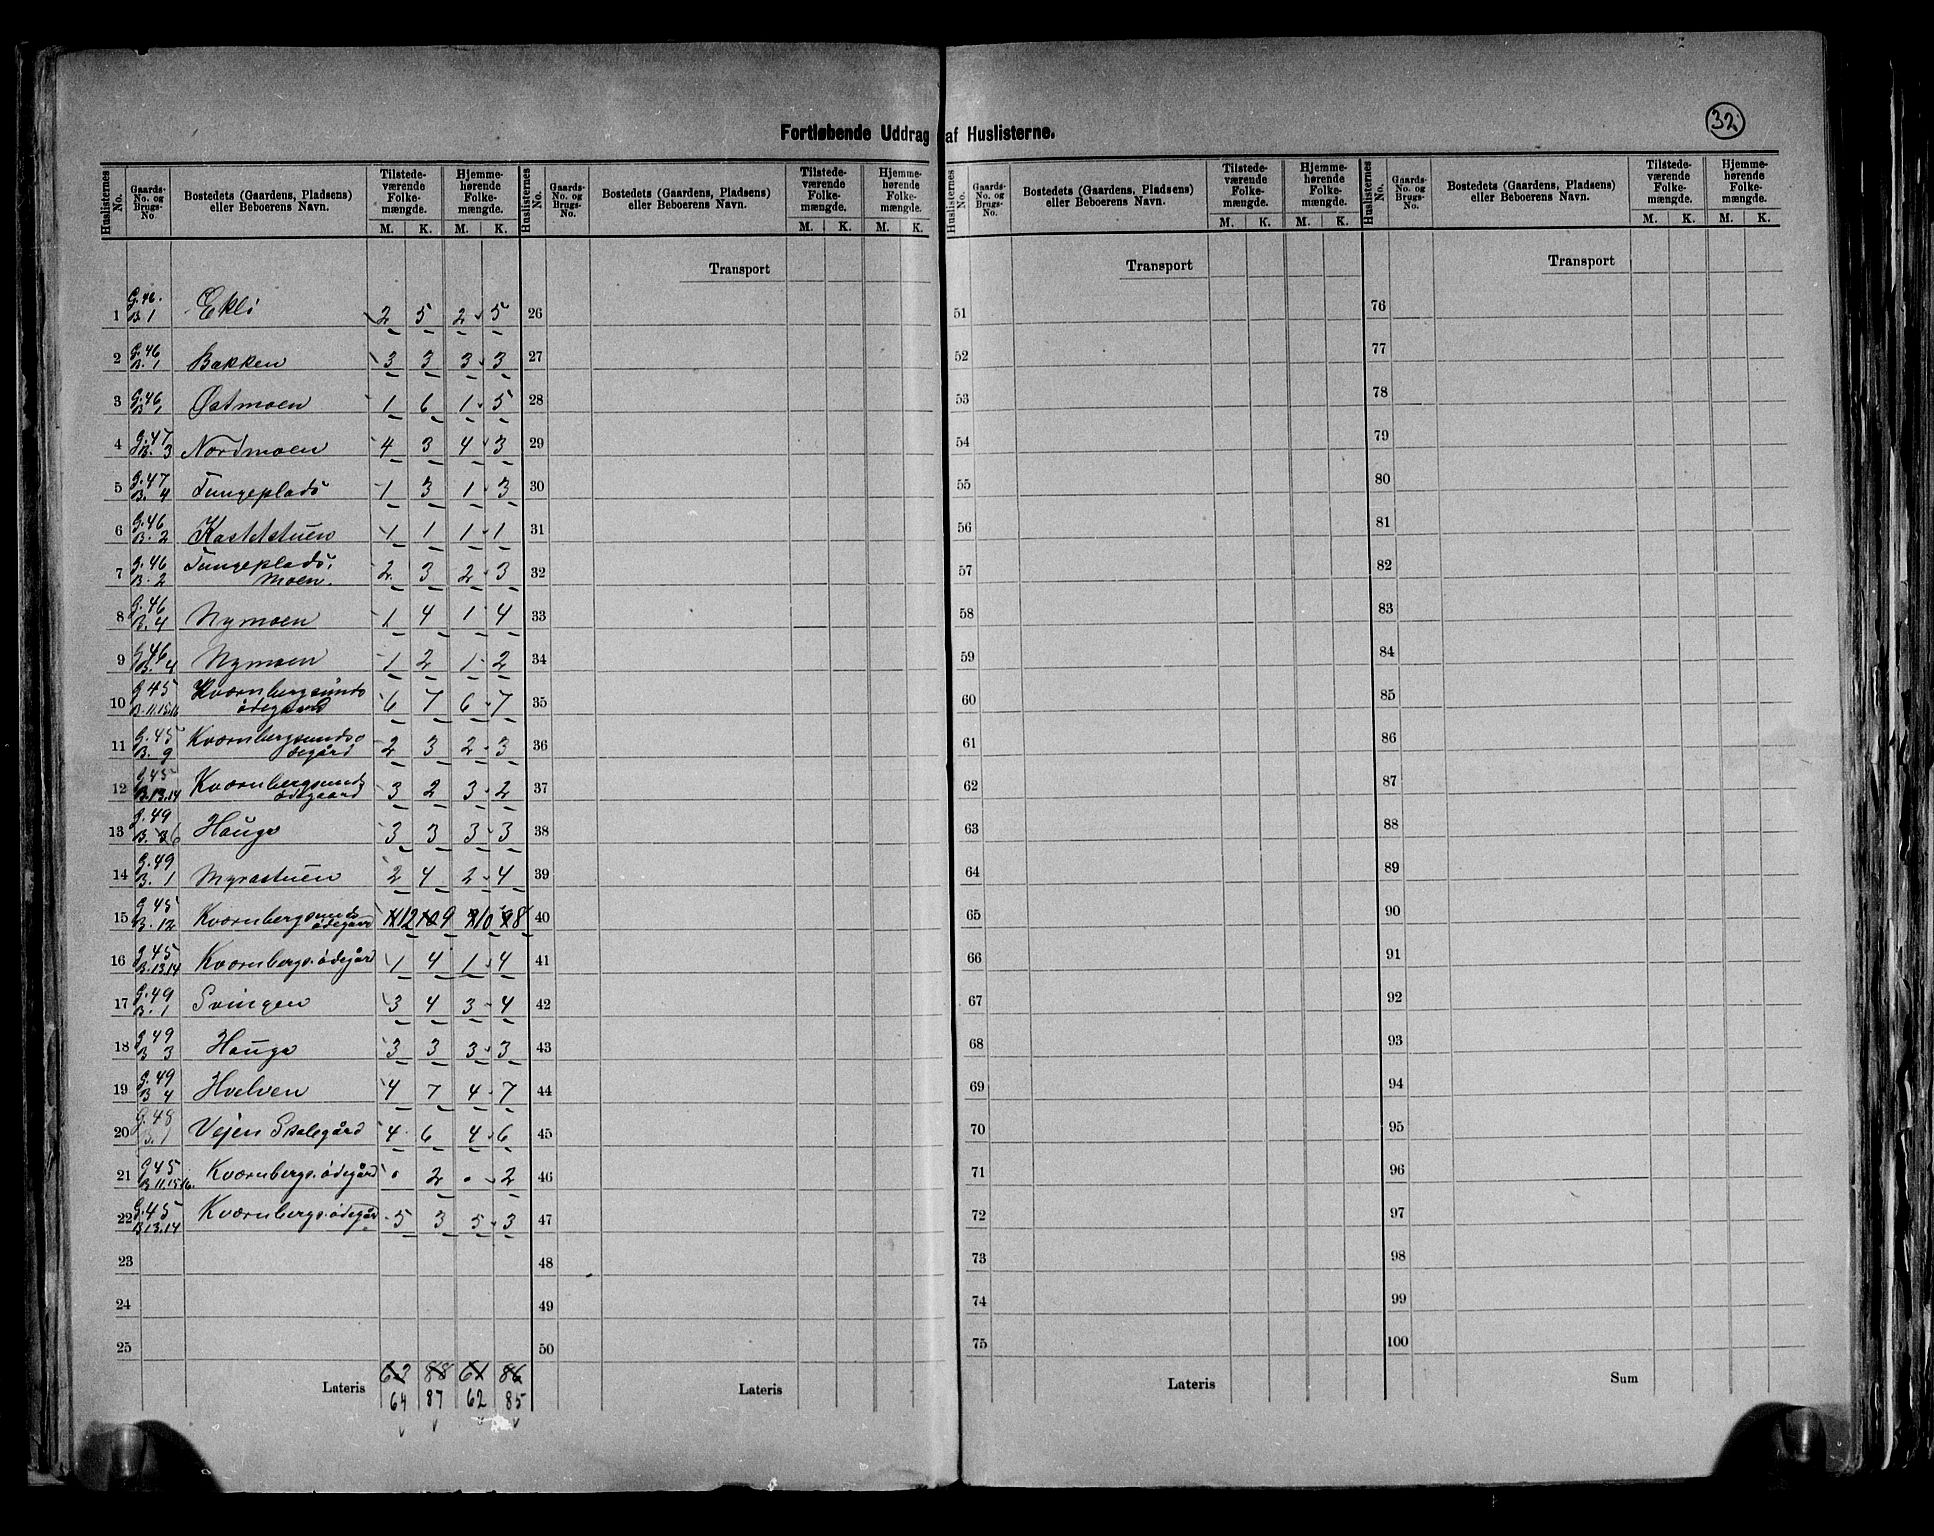 32
Fortløbende Uddrag af Huslisterne.
Huslisternes No. Gaards-No. og Brugs-No. Bostedets (Gaardens, Pladsens) eller Beboerens Navn. Tilstedeværende Folkemængde. M. K. Hjemmehørende Folkemængde. M. K.
Huslisternes No. Gaards-No. og Brugs-No. Bostedets (Gaardens, Pladsens) eller Beboerens Navn. Tilstedeværende Folkemængde. M. K. Hjemmehørende Folkemængde. M. K.
Huslisternes No. Gaards-No. og Brugs-No. Bostedets (Gaardens, Pladsens) eller Beboerens Navn. Tilstedeværende Folkemængde. M. K. Hjemmehørende Folkemængde. M. K.
Huslisternes No. Gaards-No. og Brugs-No. Bostedets (Gaardens, Pladsens) eller Beboerens Navn. Tilstedeværende Folkemængde. M. K. Hjemmehørende Folkemængde. M. K.
Transport Transport Transport
1 G.46. B.1 Ekli 2 5 2 5 26 51 76
2 G.46 B.1 Bakken 3 3 3 3 27 52 77
3 G.46 B.1 Østmoen 1 6 1 5 28 53 78
4 G.47 B.3 Nordmoen 4 3 4 3 29 54 79
5 G.47 B.4 Tungeplads 1 3 1 3 30 55 80
6 G.46 B.2 Kastetstuen 1 1 1 1 31 56 81
7 G.46 B.2 Tungeplads, Moen. 2 3 2 3 32 57 82
8 G.46 B.4 Nymoen 1 4 1 4 33 58 83
9 G.46 B.4 Nymoen 1 2 1 2 34 59 84
10 G.45 B.11.15.16 Kværnbergsunds ødegaard 6 7 6 7 35 60 85
11 G.45 B.9 Kværnbergsundsødegård 2 3 2 3 36 61 86
12 G.45 B.13.14 Kværnbergsunds ødegaard 3 2 3 2 37 62 87
13 G.49 B.36 Hauge 3 3 3 3 38 63 88
14 G.49 B.1 Myrastuen 2 4 2 4 39 64 89
15 G.45 B.12 Kværnbergsunds ødegård 12 9 10 8 40 65 90
16 G.45 B.13.14 Kværnbergs.ødegård 1 4 1 4 41 66 91
17 G.49 B.1 Svingen 3 4 3 4 42 67 92
18 G.49 B 3 Hauge 3 3 3 3 43 68 93
19 G.49 B 4 Hvelven 4 7 4 7 44 69 94
20 G.48 B.1 Vejen Skolegård 4 6 4 6 45 70 95
21 G.45 B.11.15.16. Kværnbergs.ødegård • 2 • 2 46 71 96
22 G.45 B.13.14 Kværnbergs.ødegård 5 3 5 3 47 72 97
23 48 73 98
24 49 74 99
25 50 75 100
63 88 61 86
Lateris 64 87 62 85 Lateris Lateris Sum